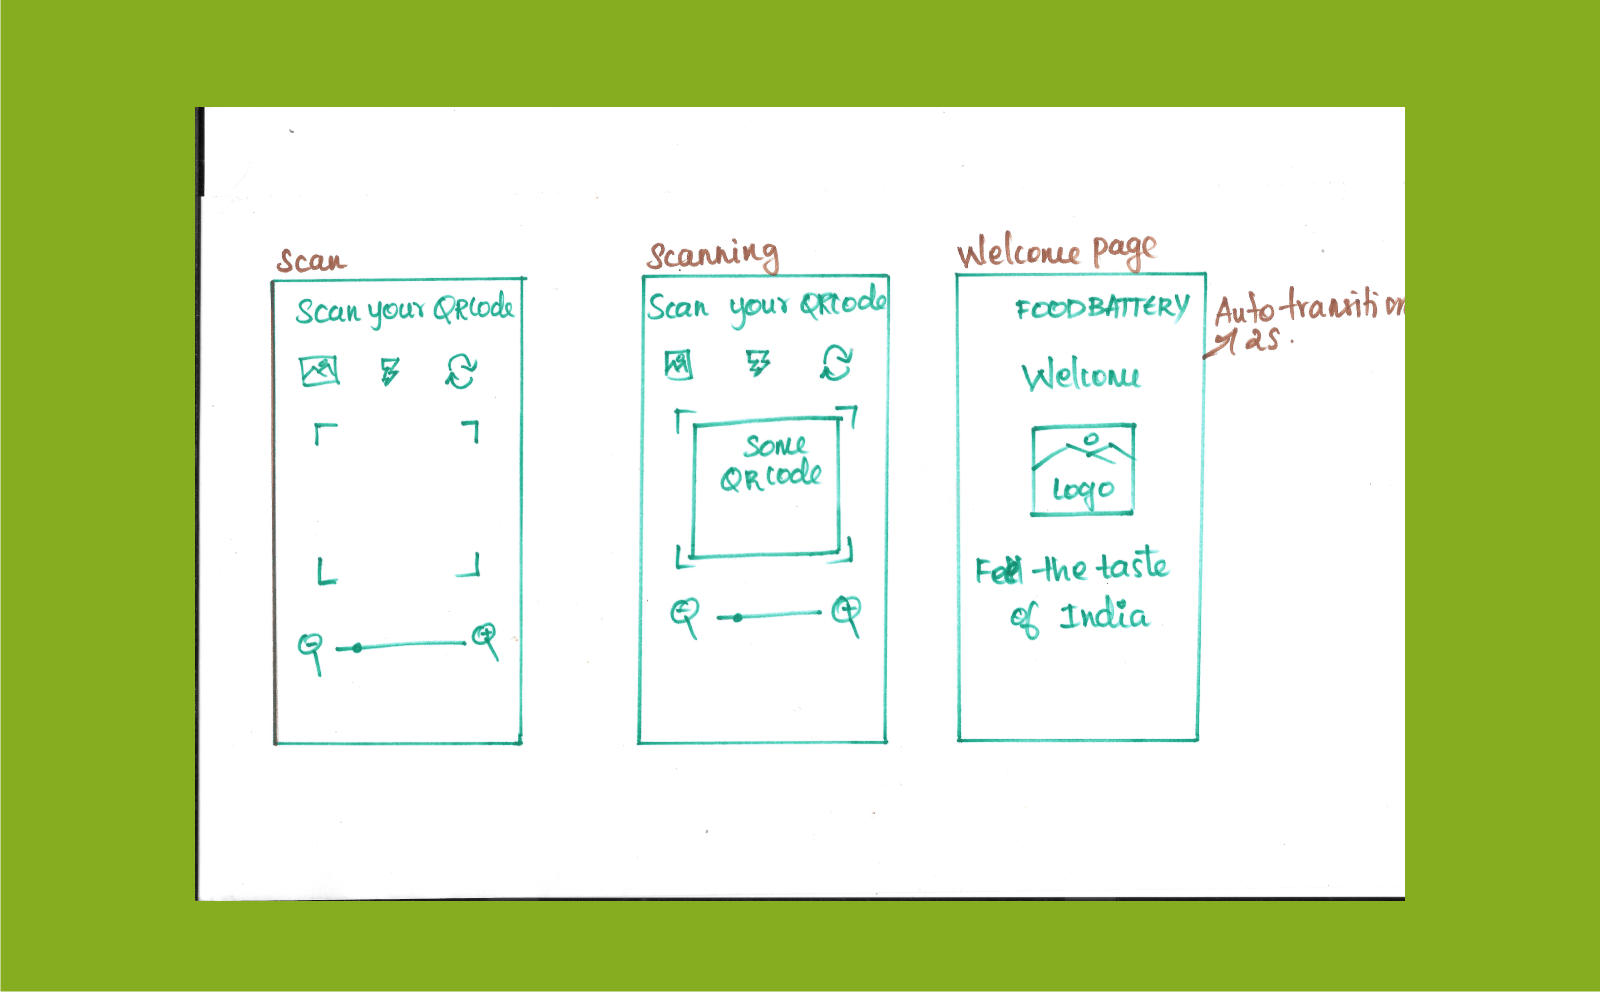 Scan
Scan your QRCode
Scanning
Scan your QRCode
Some
QRCode
Welcome page
FOODBATTERY
Welcome
Logo
Feel the taste
of India
Auto transition
2s.